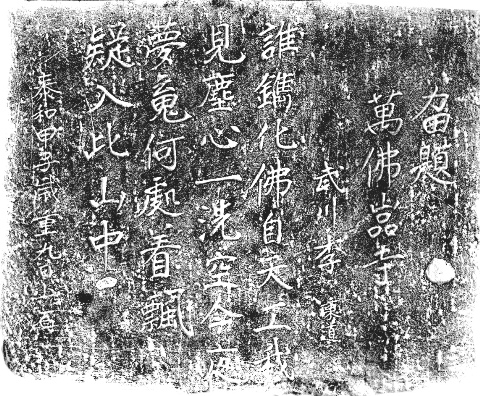 留題
萬佛嵓寺
武川李
誰鐫化佛自天工我
見塵心一洗空今夜
夢魂何處著飄
疑入此山中
泰和甲子歲重九日上石